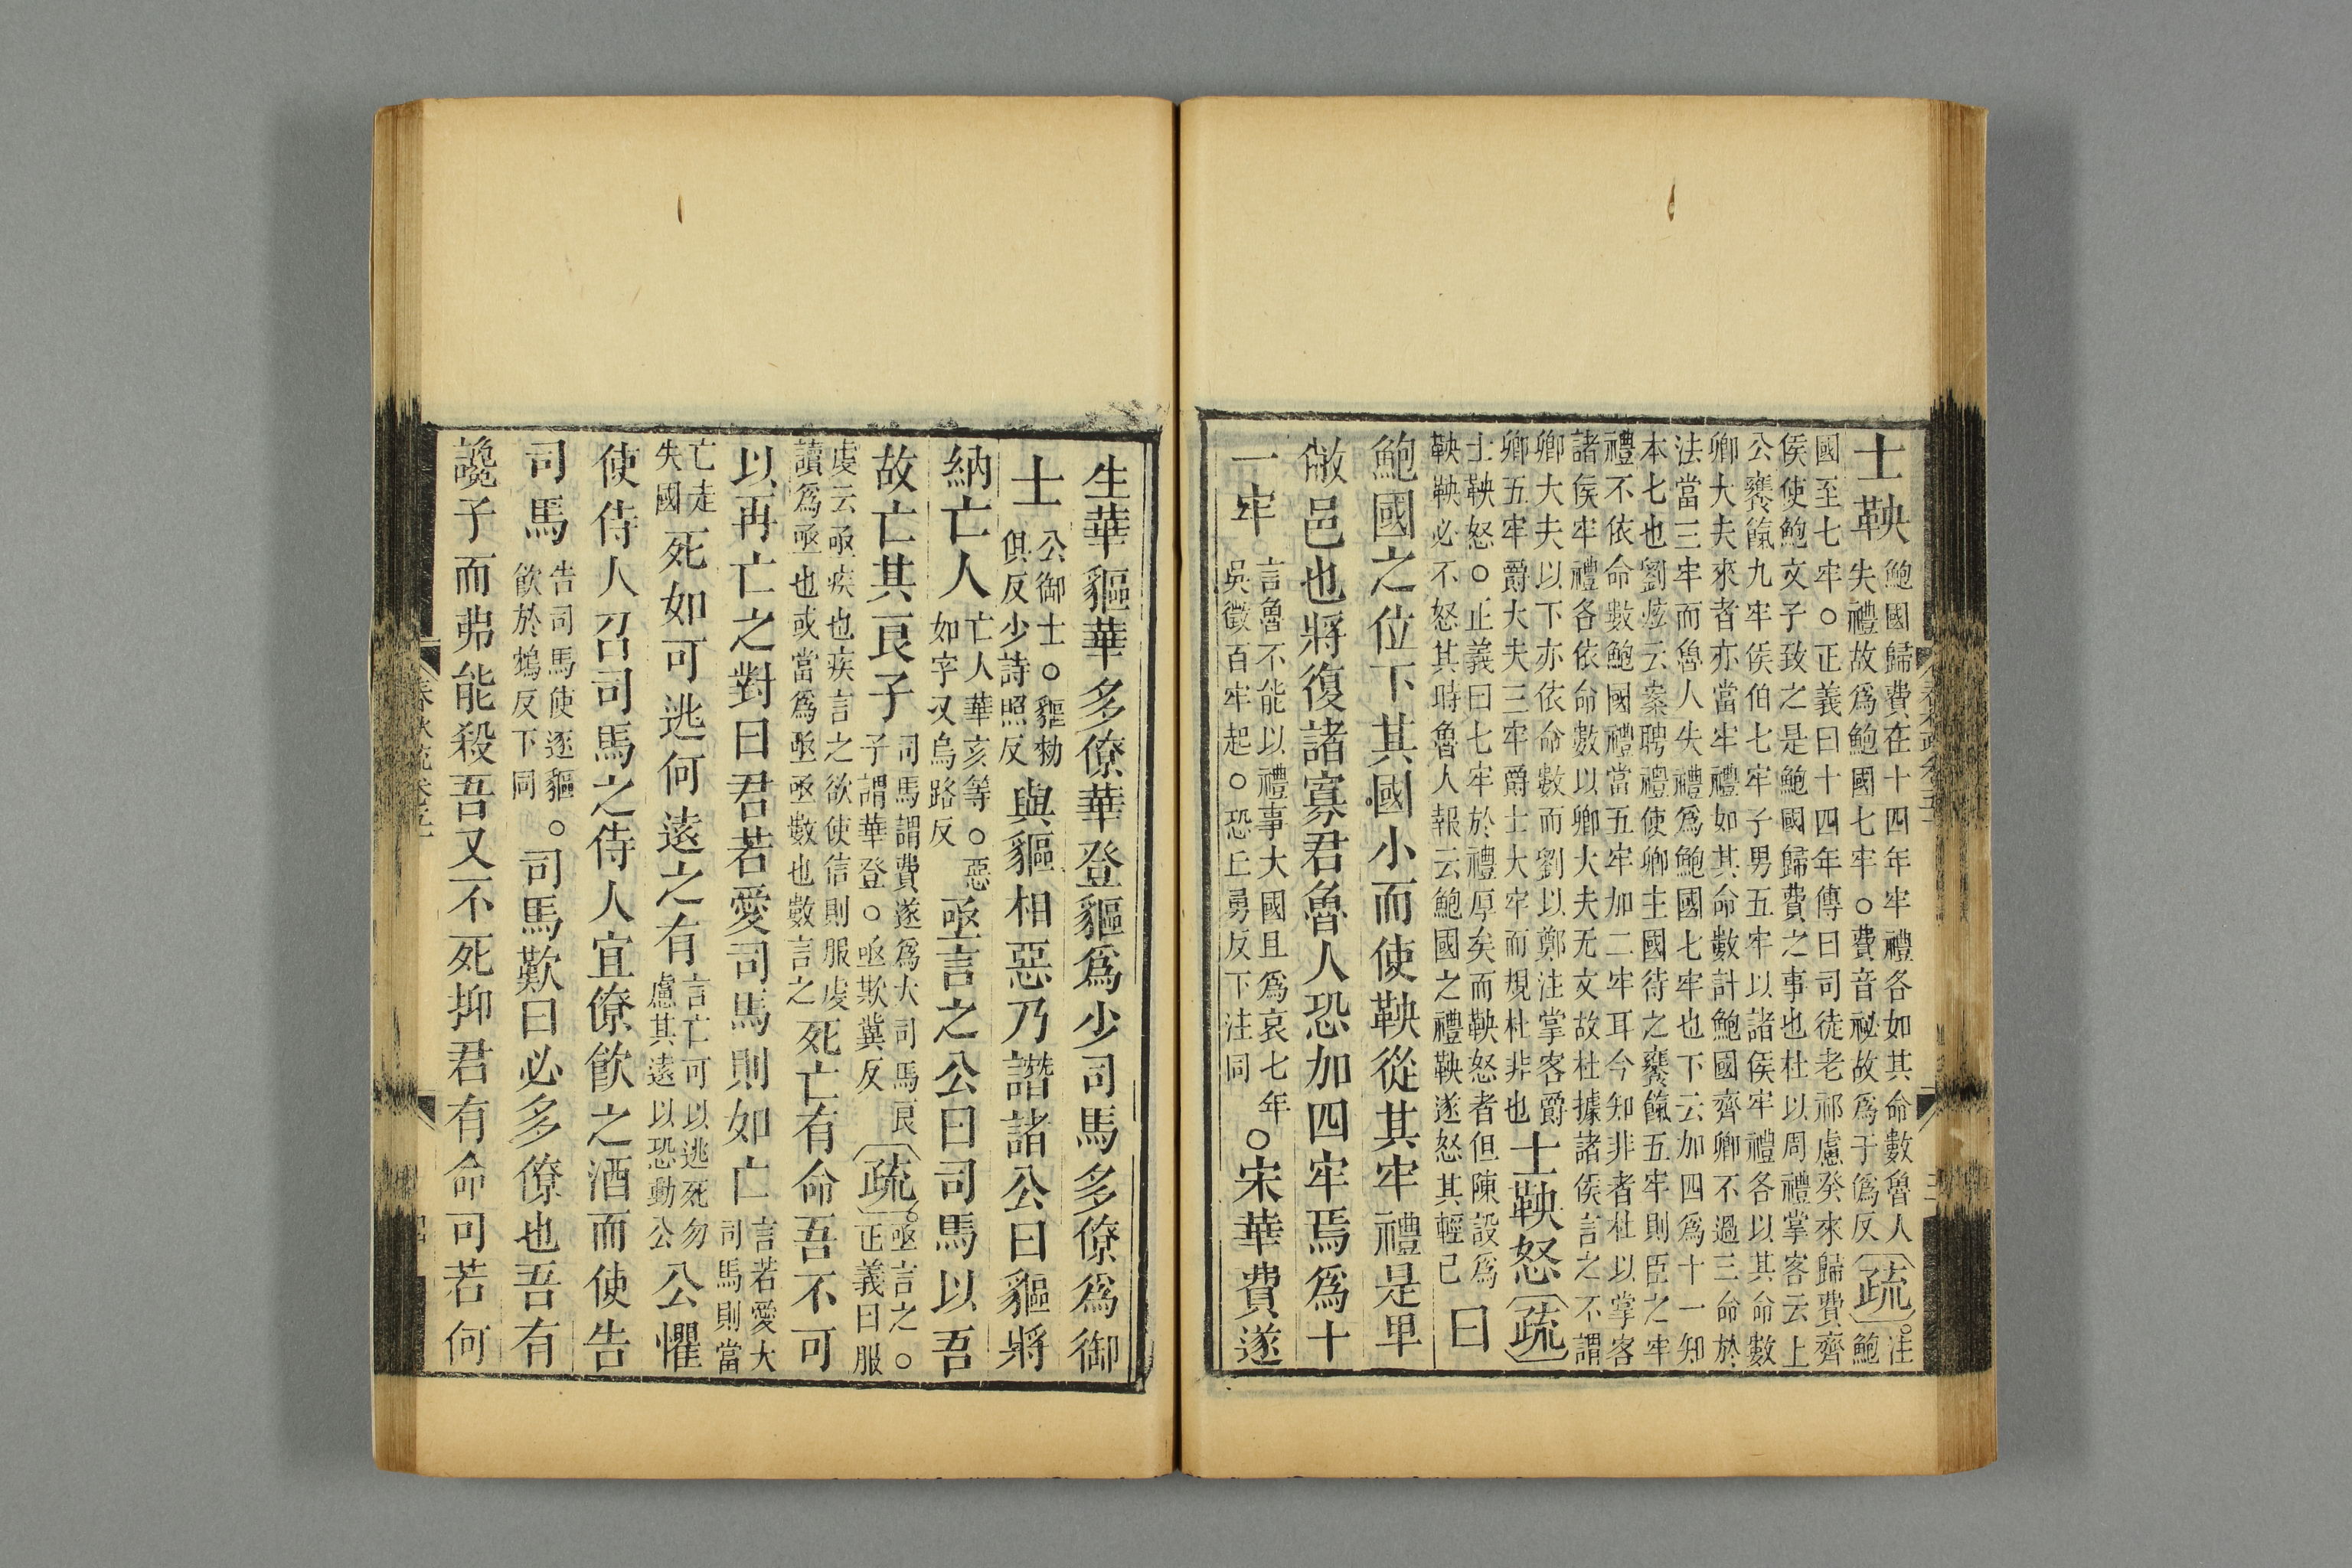 士鞅鮑國歸費在十四年牢禮各如其命數魯人失禮故爲鮑國七牢○費音祕故爲于僞反疏注鮑
國至七牢○正義曰十四年傳曰司徒老祁慮癸來歸費齊
侯使鮑文子致之是鮑國歸費之事也杜以周禮掌客云上
公饔餼九牢侯伯七牢子男五牢以諸侯牢禮各以其命數
卿大夫來者亦當牢禮如其命數計鮑國齊卿不過三命於
法當三牢而魯人失禮爲鮑國七牢也下云加四爲十一知
本七也劉炫云案聘禮使卿主國待之饔餼五牢則臣之牢
禮不依命數鮑國禮當五牢加二牢耳今知非者杜以掌客
諸侯牢禮各依命數以卿大夫无文故杜據諸侯言之不謂
卿大夫以下亦依命數而劉以鄭注掌客爵卿五牢爵大夫三牢爵士大牢而規杜非也士鞅怒疏
士鞅怒○正義曰七牢於禮厚矣而鞅怒者但陳設爲鞅鞅必不怒其時魯人報云鮑國之禮鞅遂怒其輕己曰
鮑國之位下其國小而使鞅從其牢禮是卑
敝邑也將復諸寡君魯人恐加四牢焉爲十
一牢言魯不能以禮事大國且爲哀七年吳徵百牢起○恐丘勇反下注同○宋華費遂
生華貙華多僚華登貙爲少司馬多僚爲御
士公御士○貙勑俱反少詩照反與貙相惡乃譖諸公曰貙將
納亡人亡人華亥等○惡如字又烏路反亟言之公曰司馬以吾
故亡其良子司馬謂費遂爲大司馬良子謂華登○亟欺冀反疏亟言之○正義曰服
虔云亟疾也疾言之欲使信則服虔讀爲亟也或當爲亟亟數也數言之死亡有命吾不可
以再亡之對曰君若愛司馬則如亡言若愛大司馬則當
亡走失國死如可逃何遠之有言亡可以逃死勿慮其遠以恐動公公懼
使侍人召司馬之侍人宜僚飮之酒而使告
司馬告司馬使逐貙○飮於鴆反下同司馬歎曰必多僚也吾有
讒子而弗能殺吾又不死抑君有命可若何